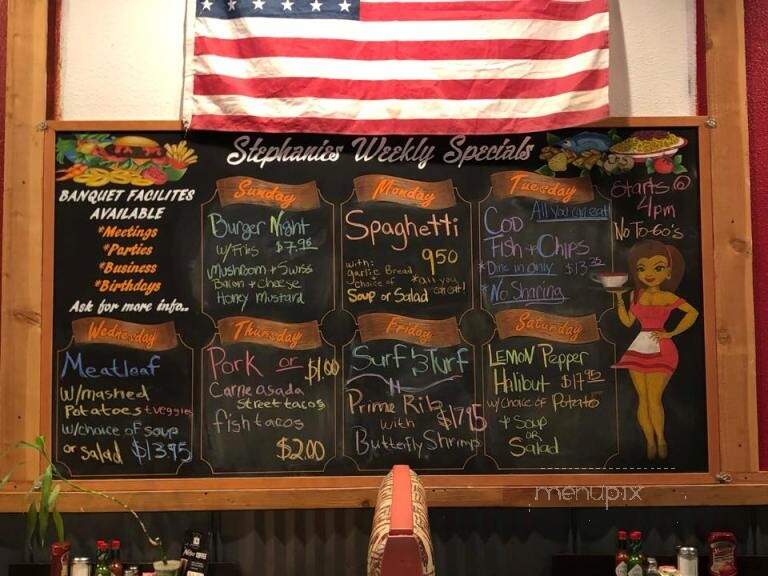 Stephanies Weekly Specials
BANQUET FACILITES
AVAILABLE
*Meetings
*Parties
*Business
*Birthdays
Ask for more info..
Sunday
Burger Night
w/Fries $7.95
Mushroom + Swiss
Bacon + Cheese
Honey Mustard
Monday
Spaghetti
with: 9.50
garlic Bread
choice of *all you
Soup or Salad can eat!
Tuesday
All you can eat
COD
Fish + Chips
*Dine in only $13.95
*No Sharing
Starts @
4pm
No To-Go's
Wednesday
Meatloaf
w/mashed
Potatoes + veggies
w/choice of soup
or salad $13.95
Thursday
Pork or $1.00
Carne asada
street tacos
fish tacos
$2.00
Friday
Surf & Turf
Prime Rib $17.95
with
Butterfly Shrimp
Saturday
LEMON Pepper
Halibut $17.95
w/choice of Potato
+ Soup
OR
Salad
menupix